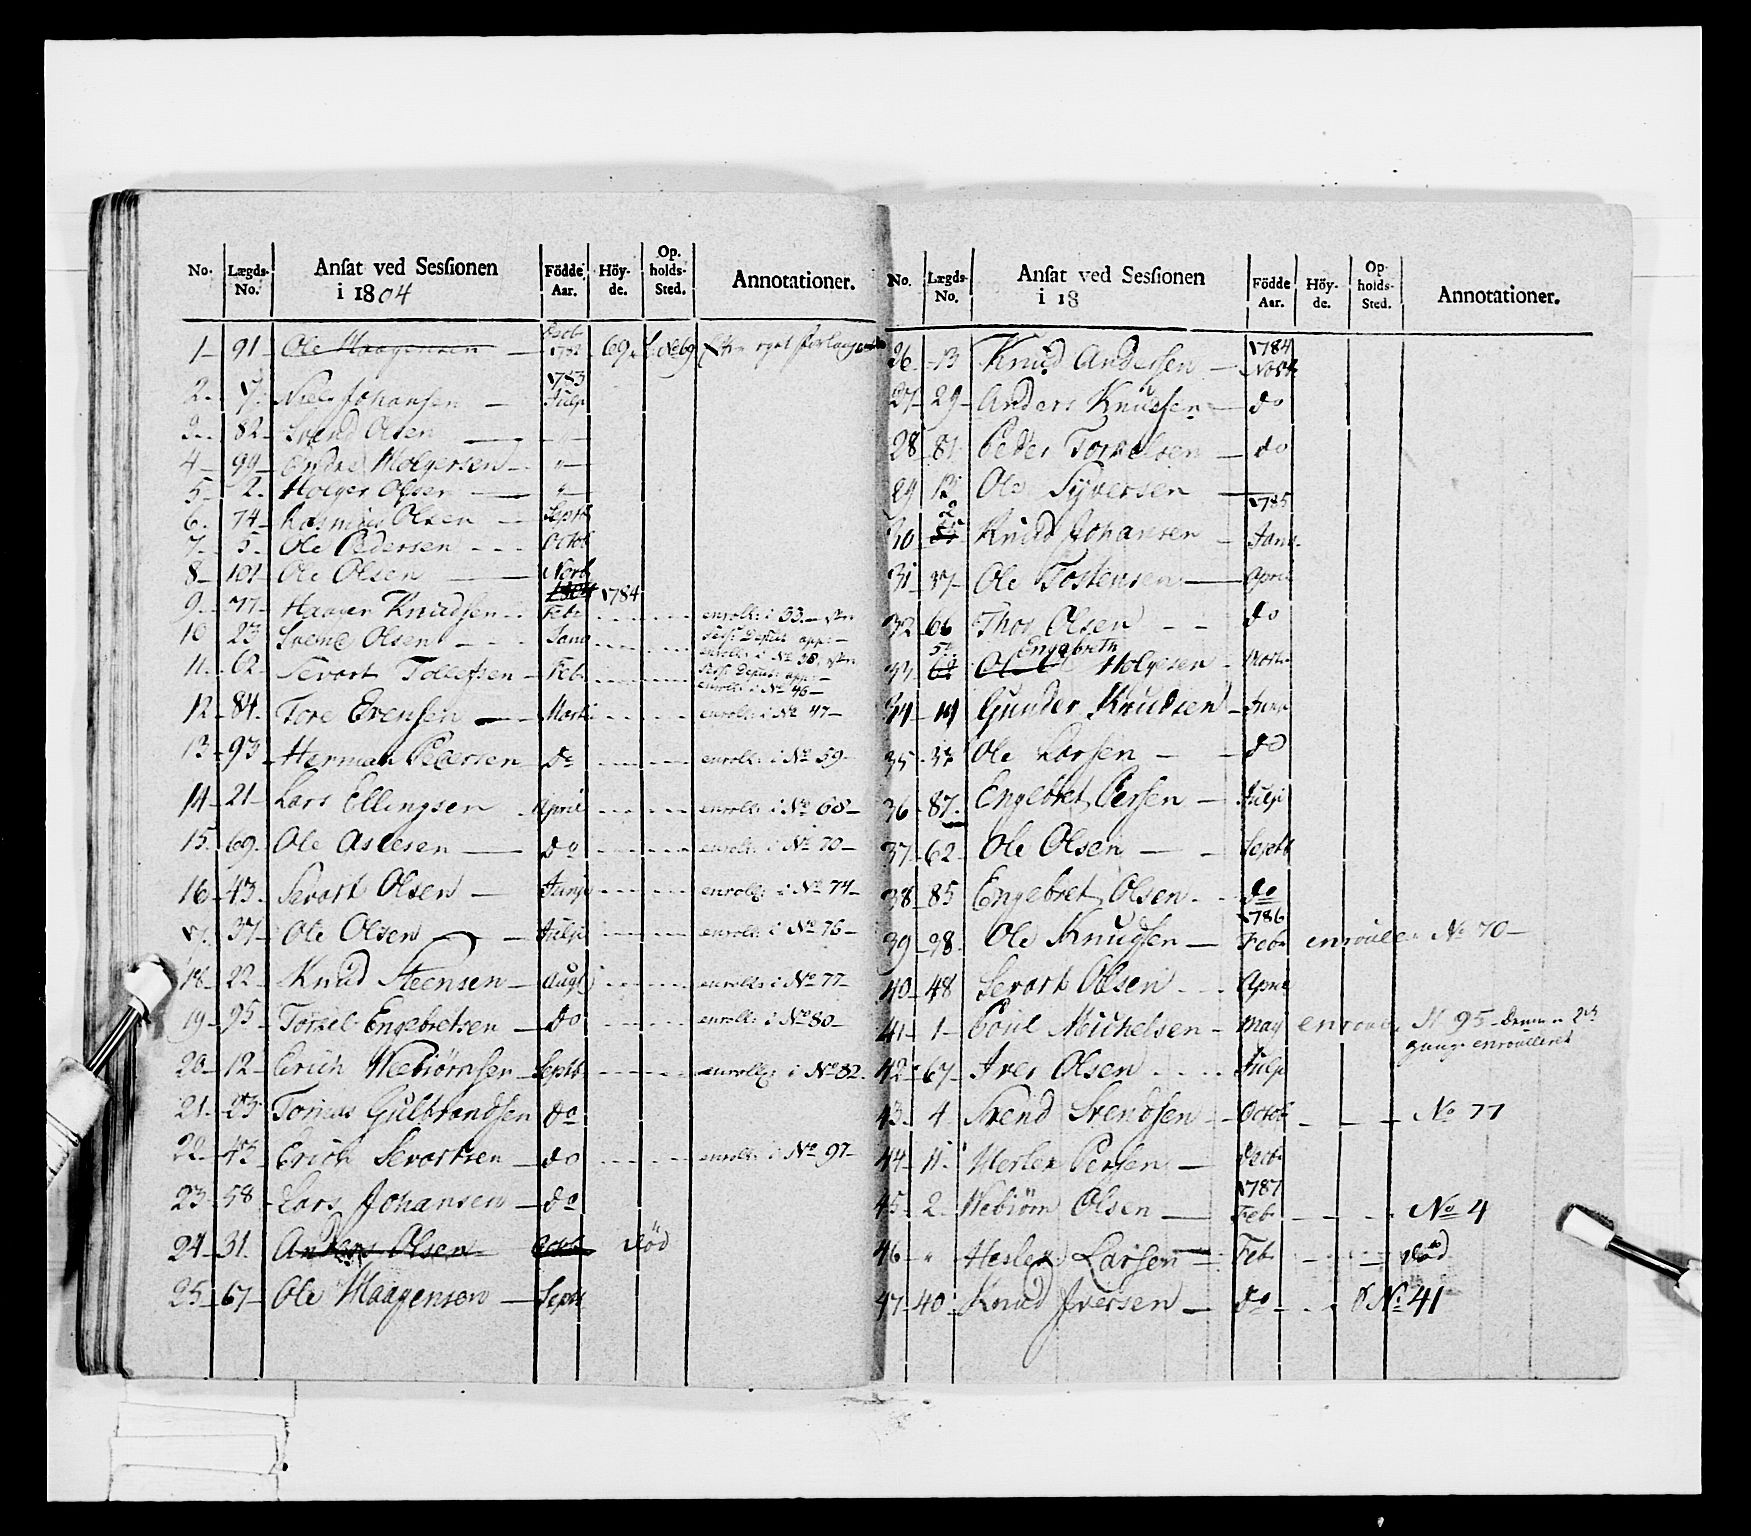 No. Lægds- No. Ansat ved Sessionen i 1804 Födde Aar. Höy- de. Op. holds- Sted. Annotationer.
1 91 Ole Haagensen Octb 1782 69 No 69
2 Niels Johansen 1783 Julji
3 82 Svend Olsen "
4 99 Holgersen "
5 2 Holger Olsen "
6 74 Rasmus Olsen Septb
7 5 Ole Pedersen Octob
8 101 Ole Olsen Novb
1804 1784
9 77 Haagen Knudsen Febr enroll: i 33
10 23 Svend Olsen Janu enroll: i No 38
11 62 Sevort Tollefsen Feb enroll: i No 46
12 84 Tore Evensen Marti enroll: i No 47
13 93 Herman Pedersen do enroll: i No 59
14 21 Lars Ellingsen April enroll: i No 68
15 69 Ole Aslesen do enroll: i No 70
16 43 Sevort Olsen Junij enroll: i No 74
17 37 Ole Olsen Julji enroll: i No 76
18 22 Knud Steensen Augt enroll: i No 77
19 95 Torkel Engebretsen do enroll: i No 80
20 12 Erich Webiörnsen Septb enroll: i No 82
21 23 Tomas Gulbrandsen do
22 43 Erich Sevortsen do enroll: i No 97
23 58 Lars Johansen do
24 31 Anders Olsen Octob död
25 67 Ole Haagenson Septb
No. Lægds- No. Ansat ved Sessionen i 18 Födde Aar. Höy- de. Op- holds- Sted. Annotationer.
26 13 Knud Andersen 1784 Novb
27 29 Anders Knudsen do
28 81 Peder Torkelsen do
29 13 Ole Syversen
1785
30 2 Knud Johansen Janu
31 37 Ole Tostensen April
32 66 Thor Olsen do
33 Engebreth Holgesen
34 Gunder Knudsen Juni
35 37 Ole Larsen do
36 87 Engebret Persen Julji
37 62 Ole Olsen Septb
38 85 Engebret Olsen do
1786
39 28 Ole Knudsen Febr enroule No 70
40 48 Sevort Olsen April
41 1 Poul Michelsen May N 95 gang enrouleret
42 67 Iver Olsen Julji
43 4 Svend Svendsen Octob No 77
44 11 Persen Decbr
1787
45 2 Webiörn Olsen Feb No 4
46 " Larsen Feb död
47 40 Knud Iversen do No 41